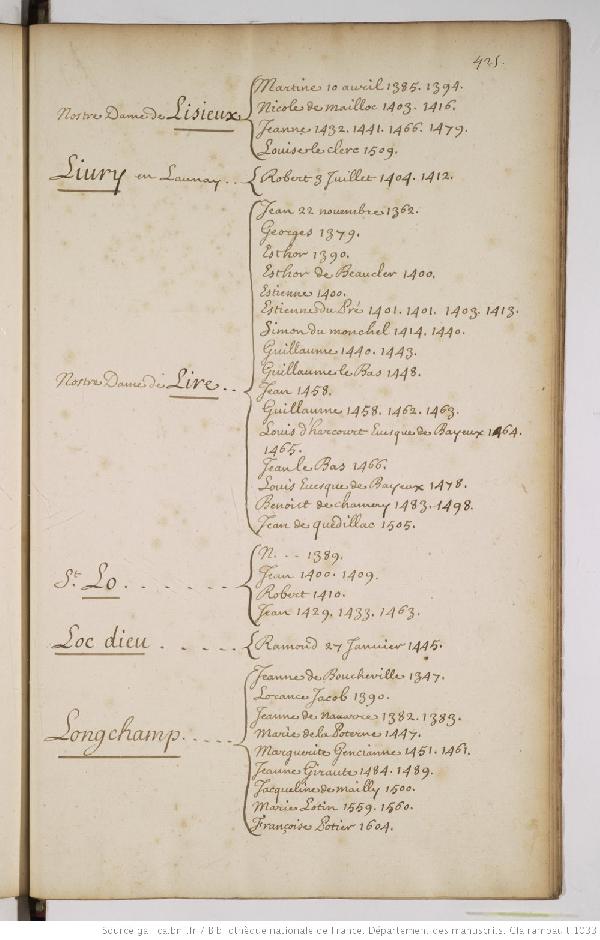 425.
Martine 10 avril 1385. 1394.
Nicole de mailloc 1403. 1416.
Nostre Dame de Lisieux
Jeanne 1432. 1441. 1466. 1479.
Louise le clerc 1509.
Liury en Launay .. Robert 3 Juillet 1404. 1412.
Jean 22 novembre 1362.
Georges 1379.
Esthor 1390.
Esthor de Beaucler 1400.
Estienne 1400.
Estienne du Pré 1401. 1401. 1403. 1413.
Simon du monchel 1414. 1440.
Guillaume 1440. 1443.
Guillaume le Bas 1448.
Nostre Dame de Lire ..
Jean 1458.
Guillaume 1458. 1462. 1463.
Louis d'harcourt Euesque de Bayeux 1464.
1465.
Jean le Bas 1466.
Louis Euesque de Bayeux 1478.
Benoist de chamery 1483. 1498.
Jean de quedillac 1505.
N. ... 1389.
Jean 1400. 1409.
St. Lo . . . . . . .
Robert 1410.
Jean 1429. 1433. 1463.
Loc dieu . . . . . Ramond 27 Janvier 1445.
Jeanne de Boucheville 1347.
Locance Jacob 1390.
Jeanne de Nauarre 1382. 1383.
Longchamp. . . . .
Marie de la Poterne 1447.
Marguerite Gencianne 1451. 1461.
Jeanne Giraute 1484. 1489.
Jacqueline de mailly 1500.
Marie Lotin 1559. 1560.
Françoise Potier 1604.
Source gallica.bnf.fr / Bibliothèque nationale de France. Département des manuscrits. Clairambault 1033